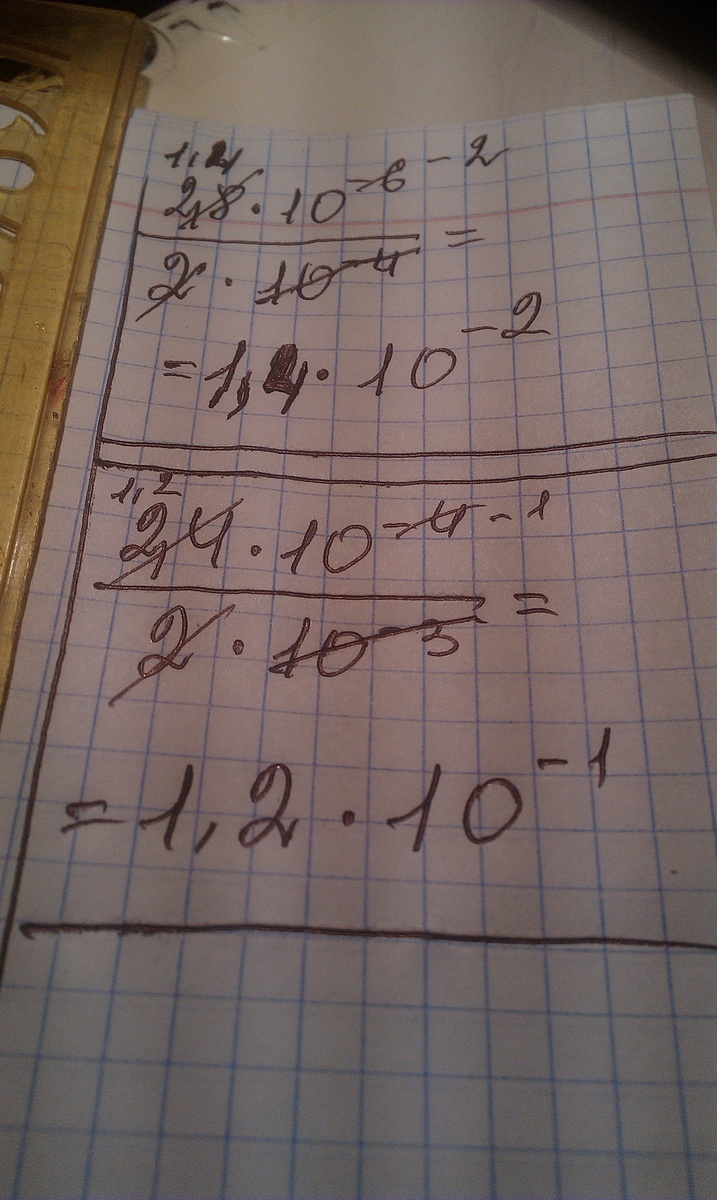 1,4
2,8 · 10⁻⁶ ⁻²
=
2 · 10⁻⁴
= 1,4 · 10⁻²
1,2
2,4 · 10⁻⁴ ⁻¹
=
2 · 10⁻³
= 1,2 · 10⁻¹